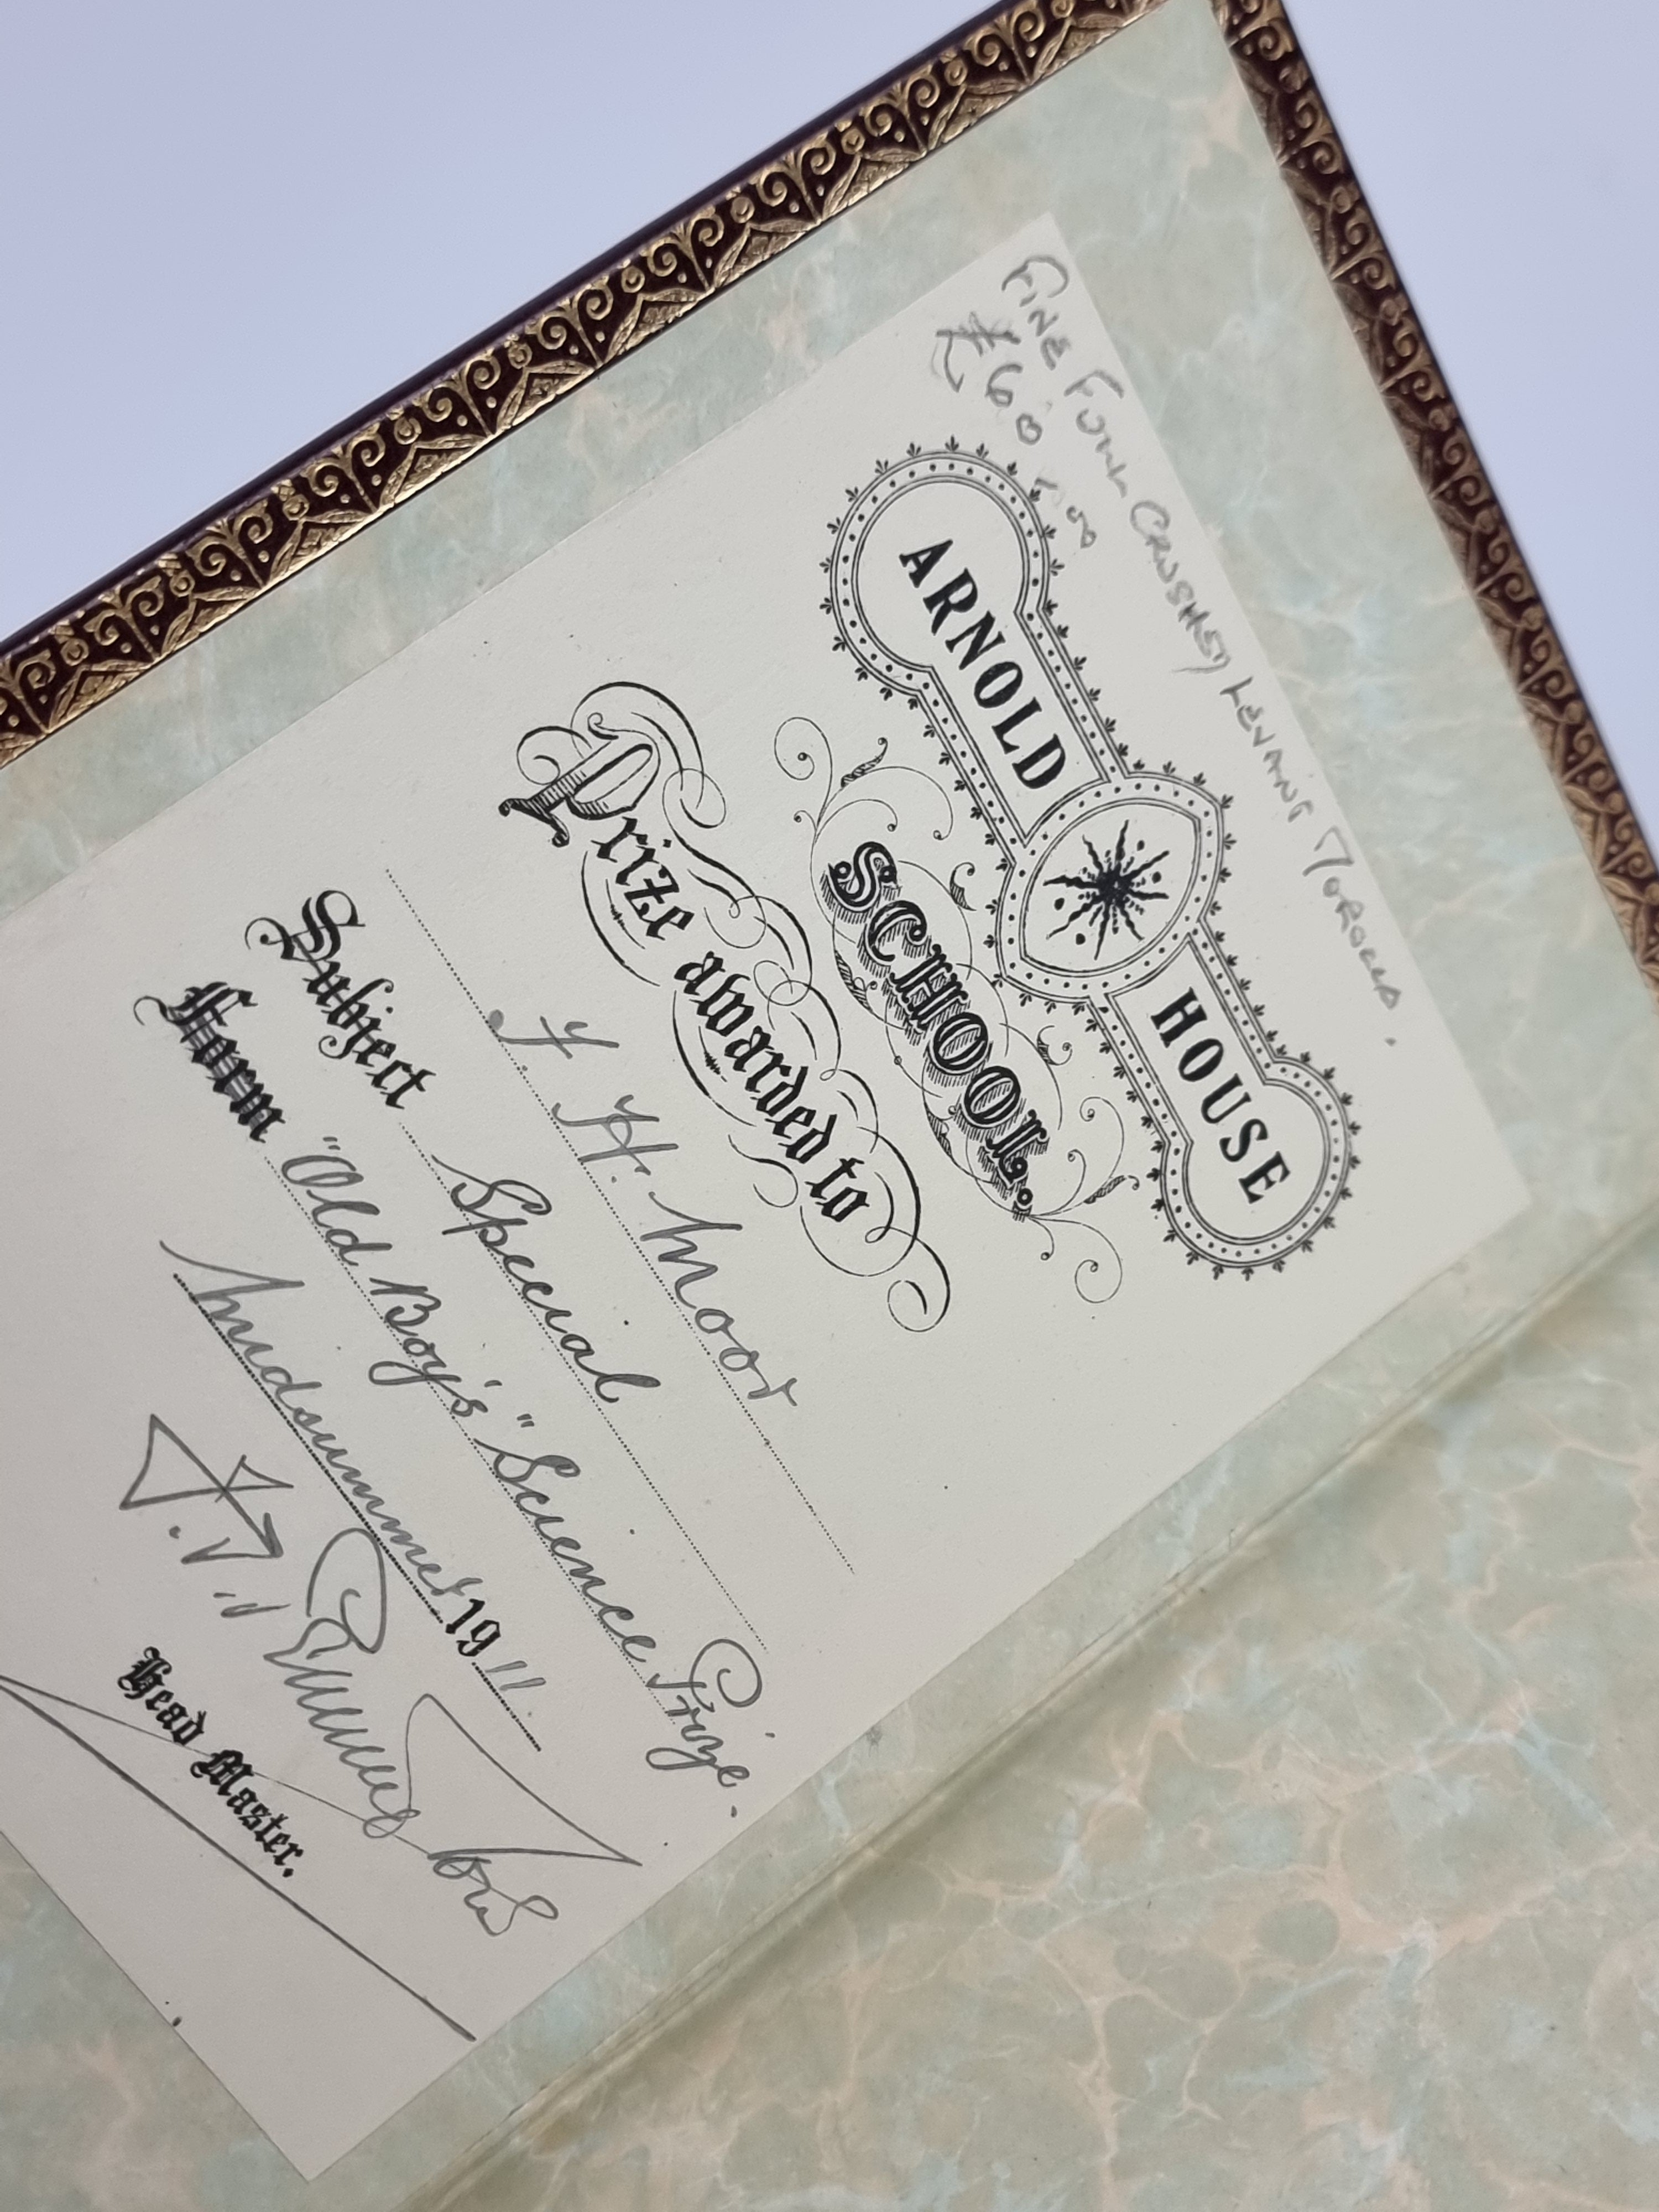 FINE FULL CRUSHED LEVANT MOROCCO.
£60
ARNOLD HOUSE
SCHOOL.
Prize awarded to
F. H. Moor
Subject Special
Form "Old Boy's" Science Prize.
Midsummer 1911
Head Master.